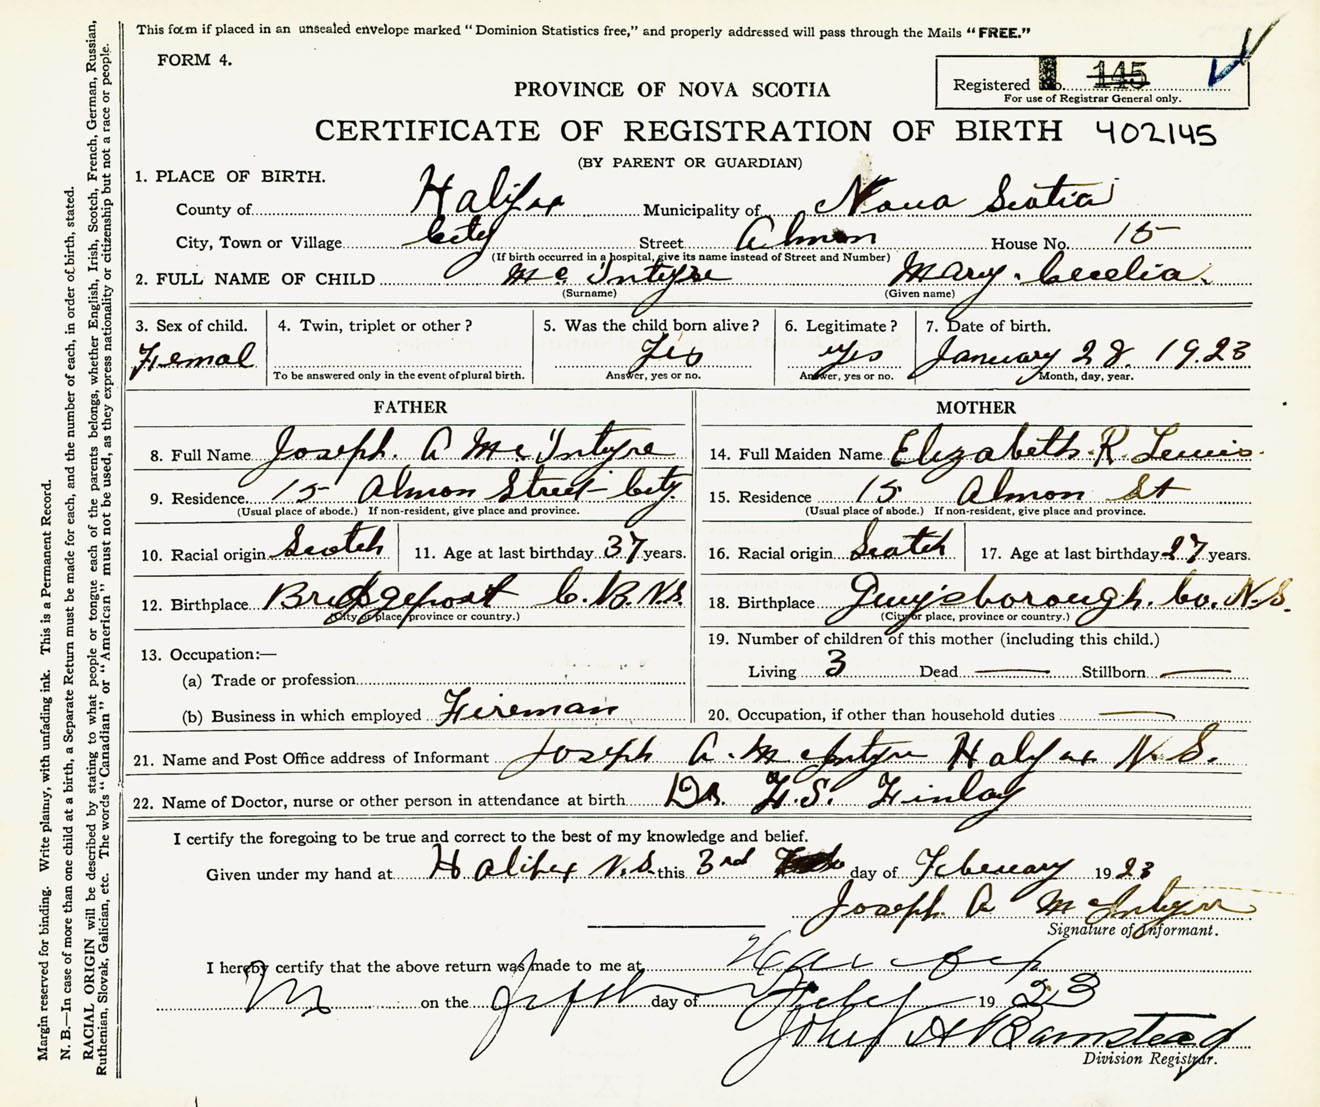 This form if placed in an unsealed envelope marked "Dominion Statistics free," and properly addressed will pass through the Mails "FREE."
FORM 4.
Registered No. 145
For use of Registrar General only.
PROVINCE OF NOVA SCOTIA
CERTIFICATE OF REGISTRATION OF BIRTH 402145
(BY PARENT OR GUARDIAN)
1. PLACE OF BIRTH.
County of Halifax Municipality of Nova Scotia
City, Town or Village City Street Almon House No. 15
(If birth occurred in a hospital, give its name instead of Street and Number)
2. FULL NAME OF CHILD Mc Intyre Mary Cecelia.
(Surname) (Given name)
3. Sex of child. 4. Twin, triplet or other? 5. Was the child born alive? 6. Legitimate? 7. Date of birth.
Femal Yes Yes January 28 1923
To be answered only in the event of plural birth. Answer, yes or no. Answer, yes or no. Month, day, year.
FATHER MOTHER
8. Full Name Joseph. A McIntyre 14. Full Maiden Name Elizabeth. R. Lewis.
9. Residence 15 Almon Street City 15. Residence 15 Almon St
(Usual place of abode.) If non-resident, give place and province. (Usual place of abode.) If non-resident, give place and province.
10. Racial origin Scotch 11. Age at last birthday 37 years. 16. Racial origin Scotch 17. Age at last birthday 27 years.
12. Birthplace Bridgeport C.B.N.S. 18. Birthplace Guysborough. Co. N.S.
(City or place, province or country.) (City or place, province or country.)
19. Number of children of this mother (including this child.)
13. Occupation:—
Living 3 Dead — Stillborn —
(a) Trade or profession
(b) Business in which employed Fireman 20. Occupation, if other than household duties —
21. Name and Post Office address of Informant Joseph A. McIntyre Halifax N.S.
22. Name of Doctor, nurse or other person in attendance at birth Dr. F.S. Finlay
I certify the foregoing to be true and correct to the best of my knowledge and belief.
Given under my hand at Halifax N.S. this 3rd day of Febeuary 1923
Joseph A McIntyre
Signature of Informant.
I hereby certify that the above return was made to me at Halifax
N on the fifth day of Feby 1923
John A Barnstead
Division Registrar.
Margin reserved for binding. Write plainly, with unfading ink. This is a Permanent Record.
N. B.—In case of more than one child at a birth, a Separate Return must be made for each, and the number of each, in order of birth, stated.
RACIAL ORIGIN will be described by stating to what people or tongue each of the parents belongs, whether English, Irish, Scotch, French, German, Russian,
Ruthenian, Slovak, Galician, etc. The words "Canadian" or "American" must not be used, as they express nationality or citizenship but not a race or people.